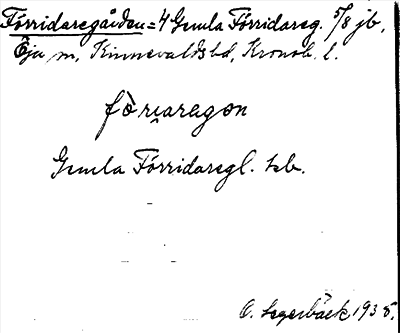 Förridaregården = 4 Gemla Förridareg. 5/8 jb,
Öja sn, Kinnevaldshd, Kronob. l.
föriaregon
Gemla Förridaregl. tsb.
O. Segerbäck 1935.